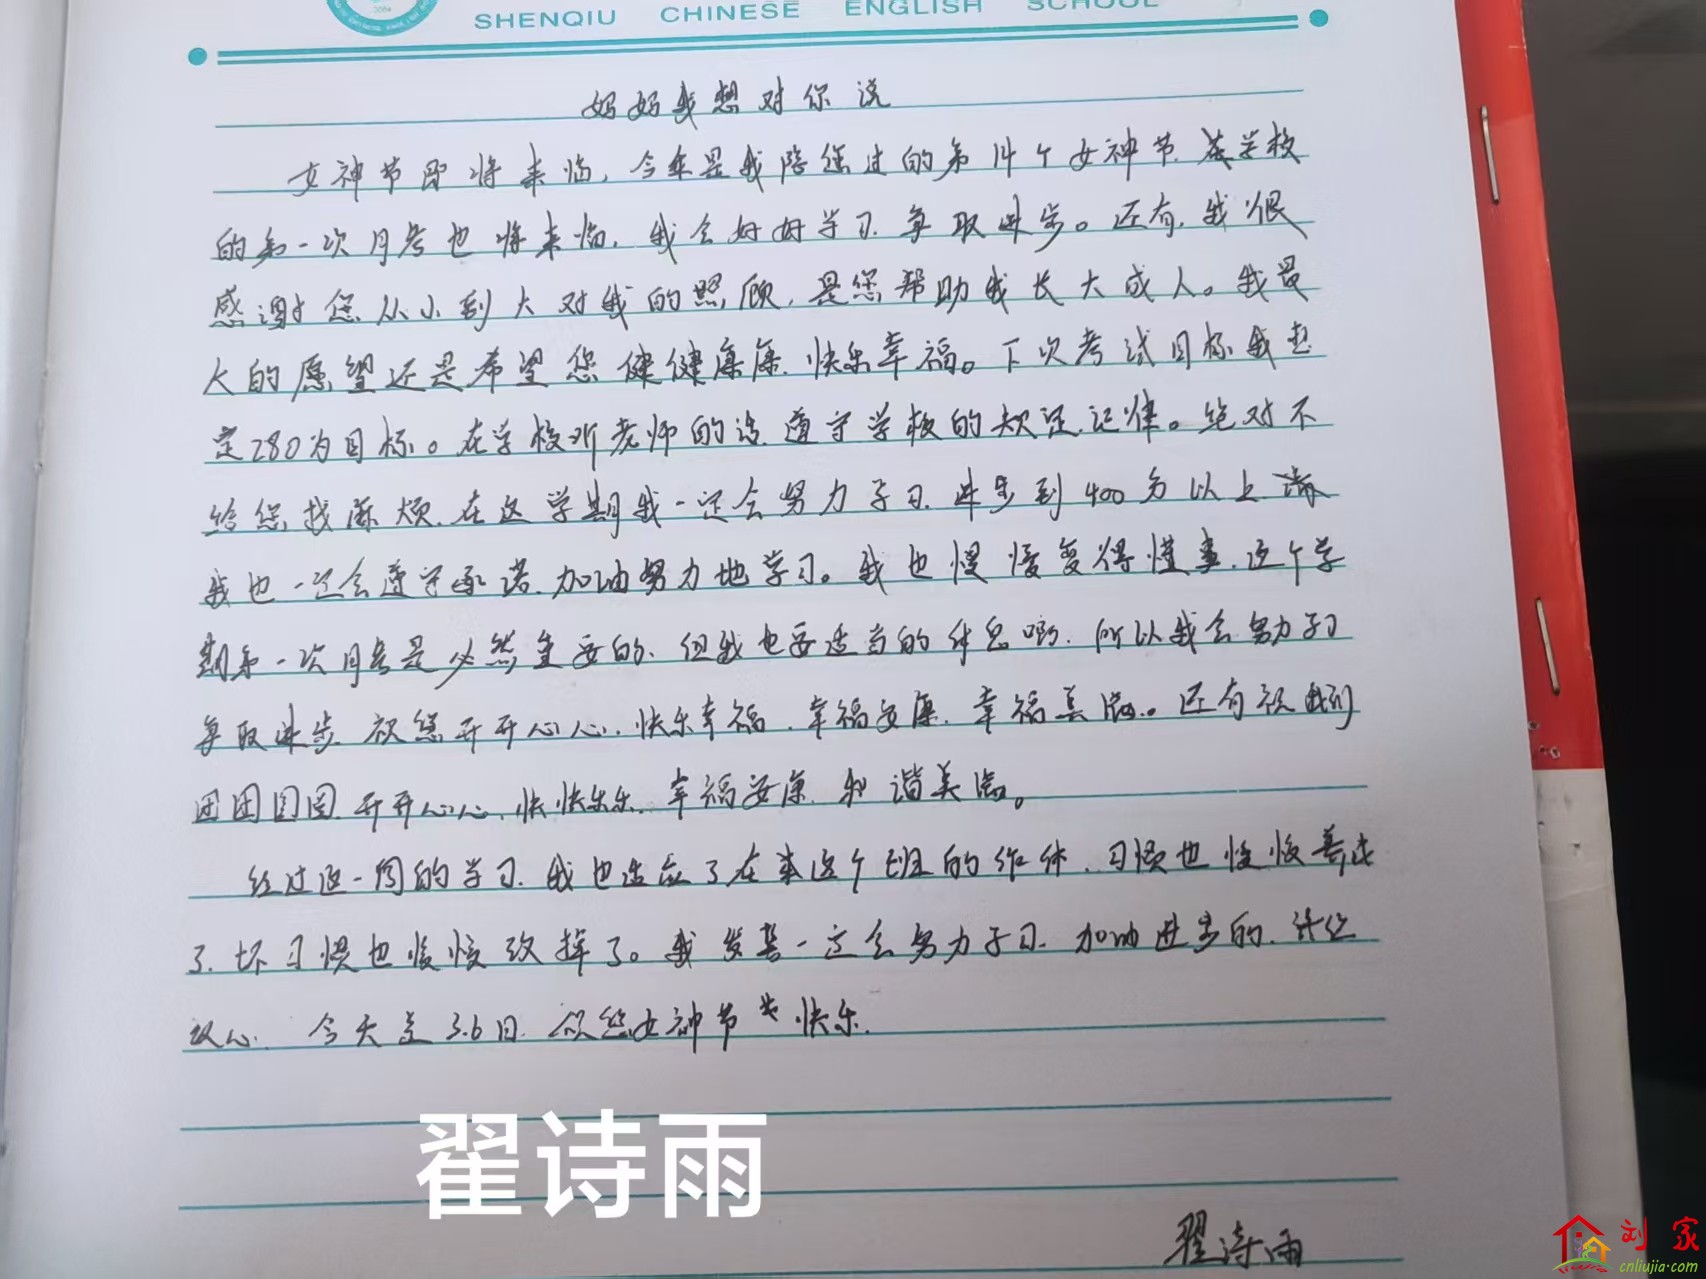 SHENQIU CHINESE ENGLISH SCHOOL
妈妈我想对你说
女神节即将来临，今年是我陪您过的第14个女神节.在学校
的第一次月考也将来临，我会好好学习.争取进步。还有，我很
感谢您从小到大对我的照顾，是您帮助我长大成人。我最
大的愿望还是希望您健健康康.快乐幸福。下次考试目标我也
定280为目标。在学校听老师的话.遵守学校的规定.记律。绝对不
给您找麻烦.在这学期我一定会努力学习.进步到400分以上.
我也一定会遵守承诺.加油努力地学习。我也慢慢变得懂事.这个学
期第一次月考是必然重要的.但我也要适当的休息哟.所以我会努力学习
争取进步.祝您开开心心.快乐幸福.幸福安康.幸福美满。还有祝我们
团团圆圆.开开心心.快快乐乐.幸福安康.和谐美满。
经过这一周的学习.我也适应了在来这个班的作休.习惯也慢慢养成
了.坏习惯也慢慢改掉了。我发誓一定会努力学习.加油进步的.让您
放心. 今天是3.6日.祝您女神节快乐.
翟诗雨
翟诗雨
刘家
cnliujia.com